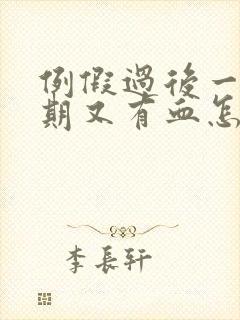 例假過後一
期又有血怎
李長軒